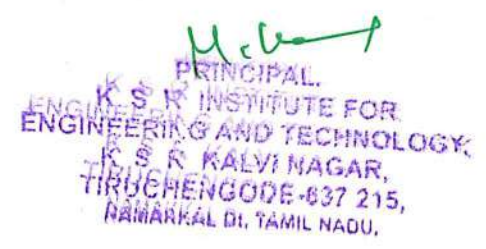 PRINCIPAL.
K S R INSTITUTE FOR
ENGINEERING AND TECHNOLOGY,
K S R KALVI NAGAR,
TIRUCHENGODE-637 215,
NAMAKKAL DI, TAMIL NADU.